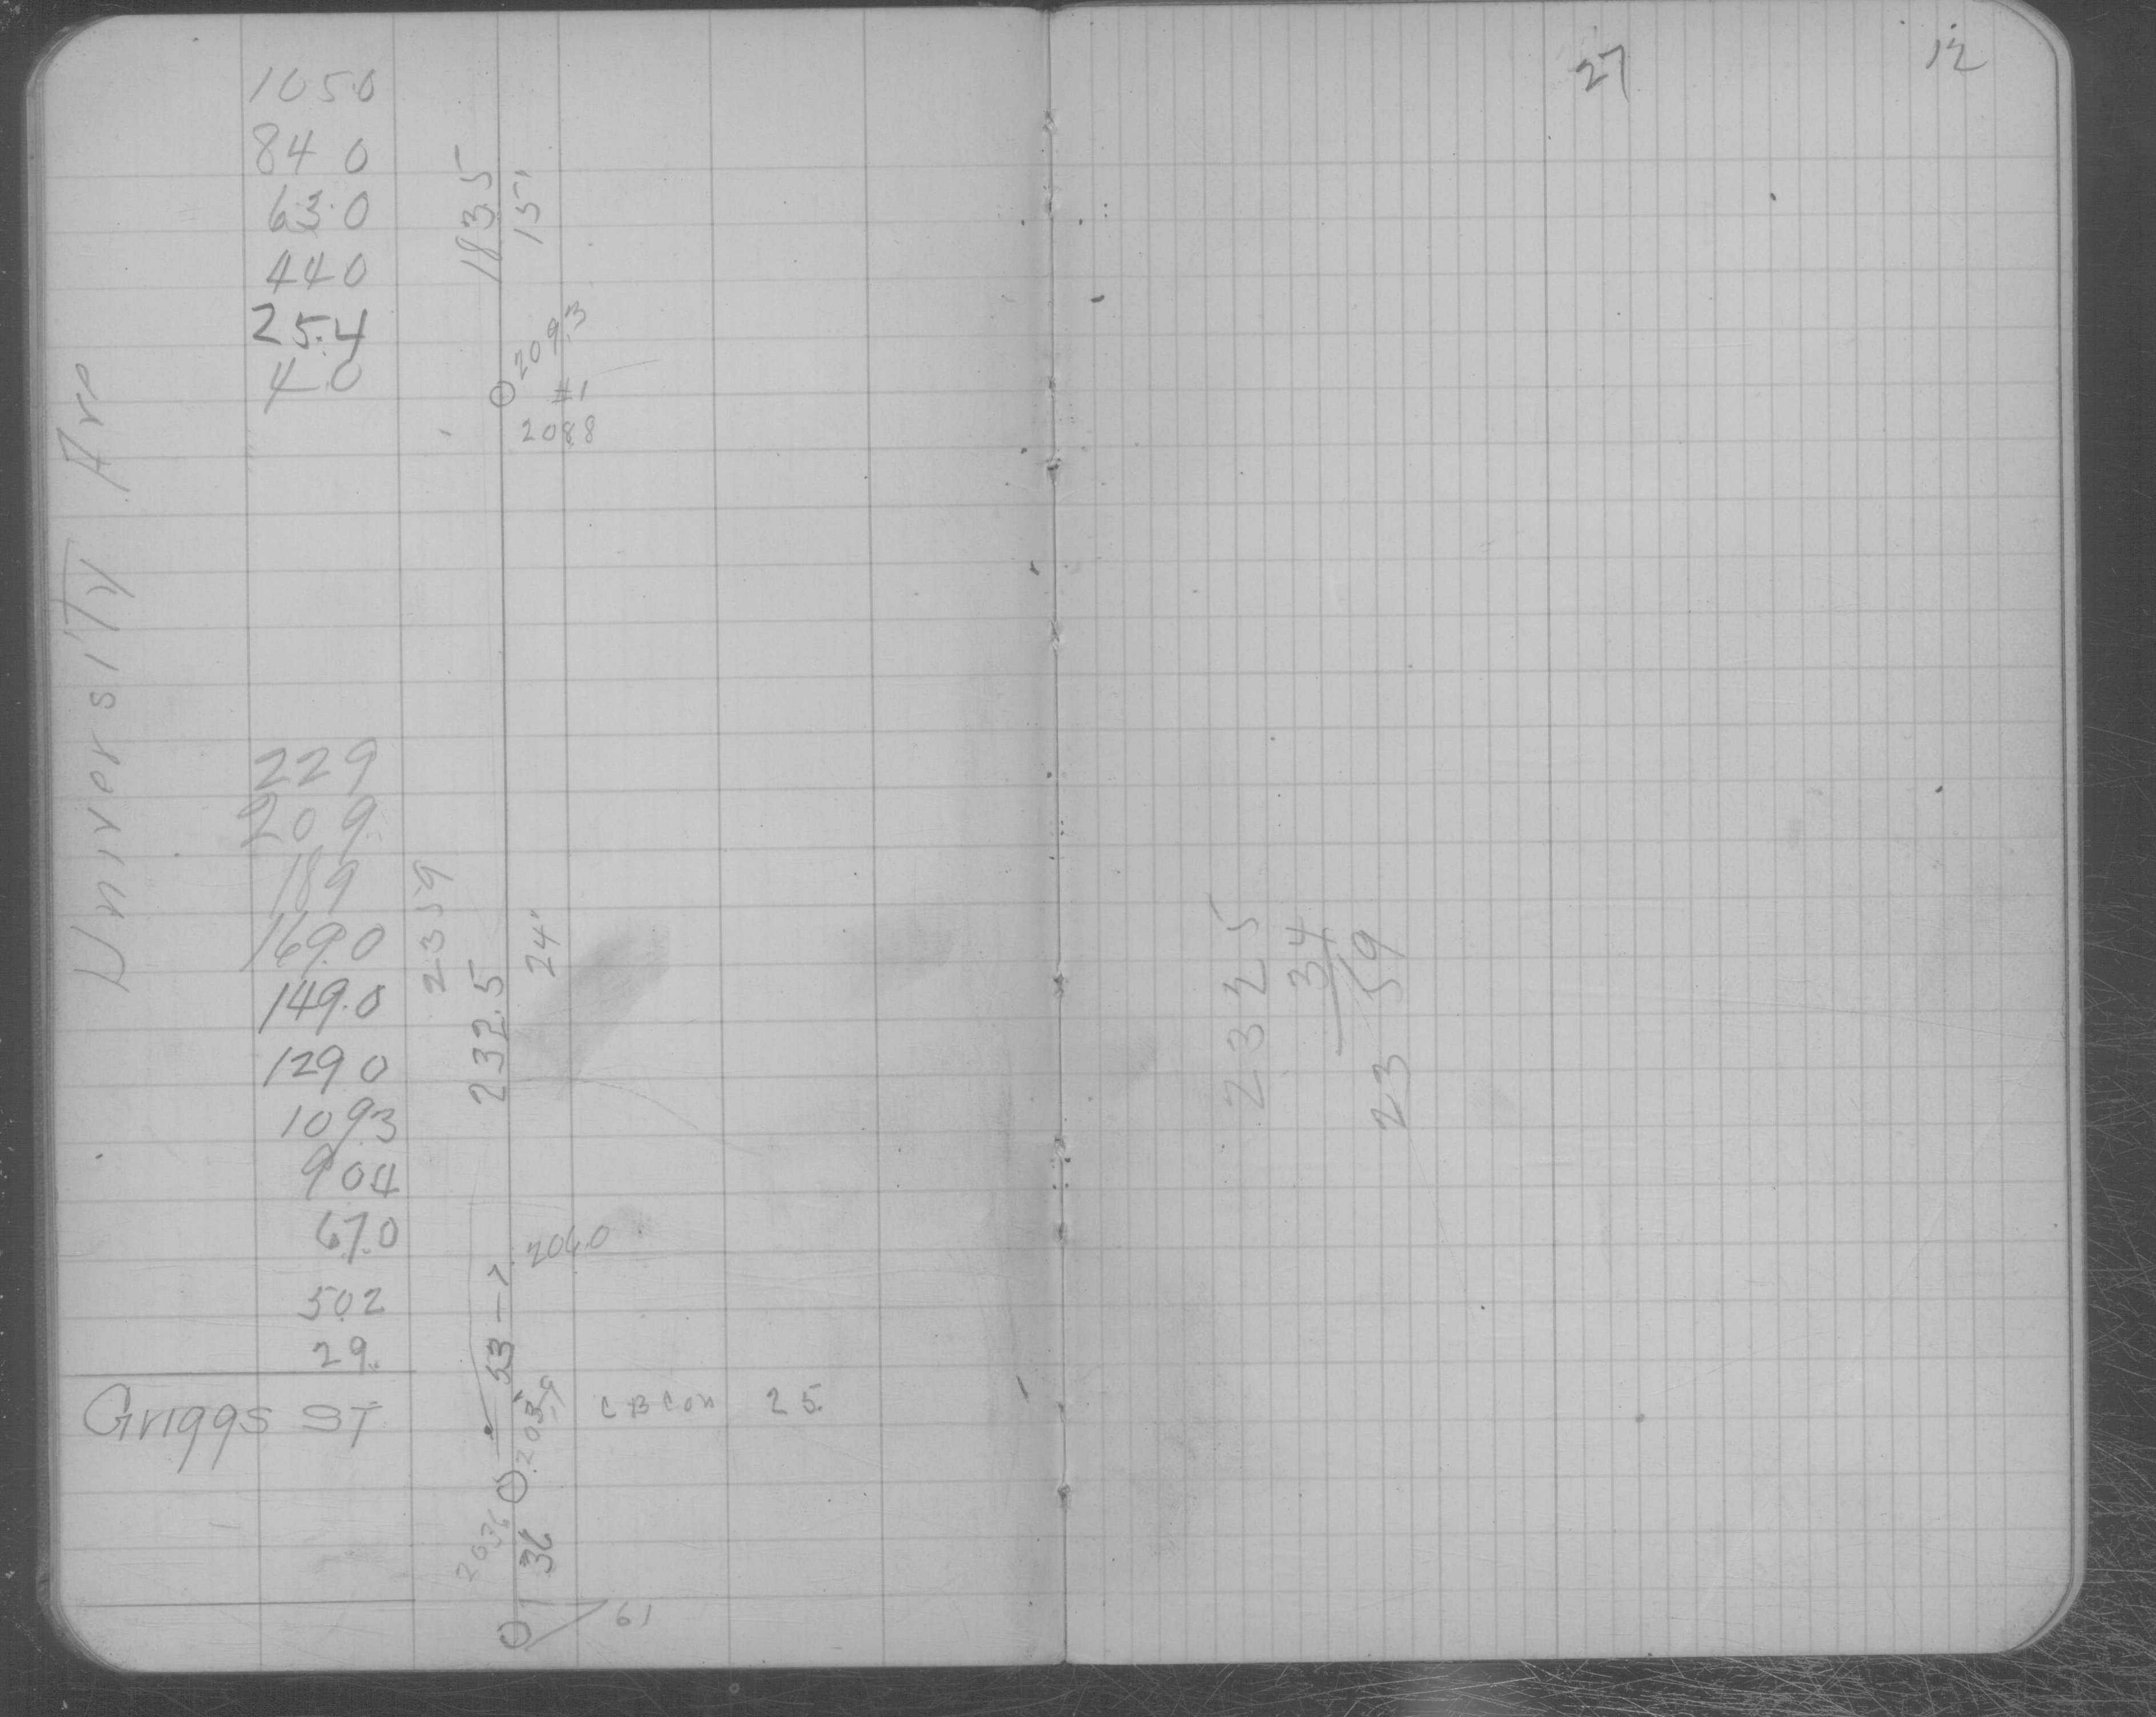 University Ave
105.0
84 0
63.0
44 0
25.4
4.0
183.5
15"
209.3
#1
208.8
229
209
189
169.0
149.0
129 0
109.3
90.4
67.0
50.2
29.
235.9
232.5
24"
206.0
53
Griggs ST
CB Con 25.
203.6
36
61
27
12
232 5
3 4
23 5 9